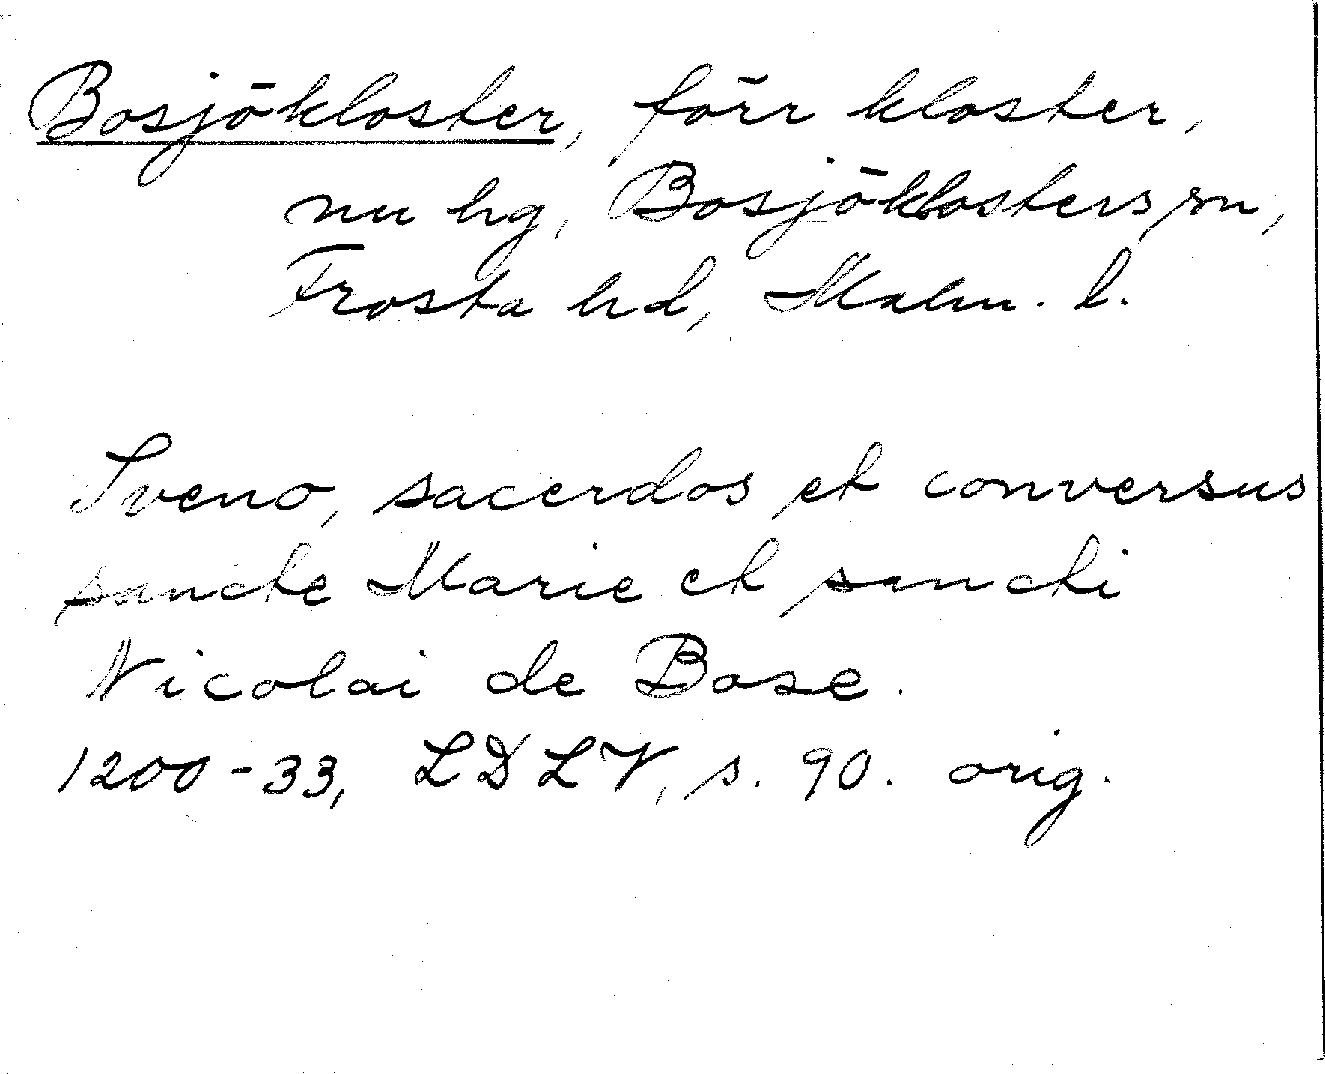 Bosjökloster, förr kloster,
nu hg, Bosjöklosters sn,
Frosta hd, Malm. l.
Sveno, sacerdos et conversus
sancte Marie et sancti
Nicolai de Bose.
1200-33, LDLV, s. 90. orig.